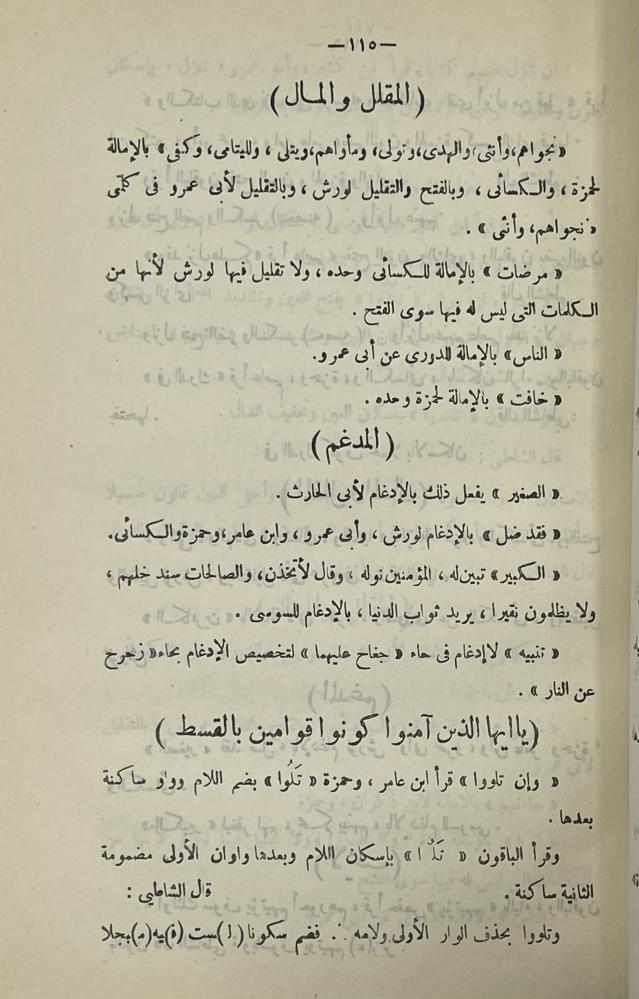 —١١٥—
( المقلل والممال )
« نجواهم، وأنثى، والهدى، وتولى، ومأواهم، ويتلى ، ولليتامى، وكفى » بالإمالة
لحمزة ، والكسائى ، وبالفتح والتقليل لورش ، وبالتقليل لأبى عمرو فى كلمتى
« نجواهم، وأنثى » .
« مرضات » بالإمالة للكسائى وحده ، ولا تقليل فيها لورش لأنها من
الكلمات التى ليس له فيها سوى الفتح .
« الناس » بالإمالة للدورى عن أبى عمرو.
« خافت » بالإمالة لحمزة وحده .
( المدغم )
« الصغير » يفعل ذلك بالإدغام لأبى الحارث .
« فقد ضل » بالإدغام لورش ، وأبى عمرو ، وابن عامر، وحمزة والكسائى.
« الكبير » تبين له ، المؤمنين نوله ، وقال لأتخذن، والصالحات سند خلهم ،
ولا يظلمون نقيرا ، يريد ثواب الدنيا ، بالإدغام للسوسى .
« تنبيه » لا إدغام فى حاء « جناح عليهما » لتخصيص الإدغام بحاء « زحزح
عن النار » .
( يا ايها الذين آمنوا كونوا قوامين بالقسط )
« وإن تلووا » قرأ ابن عامر ، وحمزة « تَلُوا » بضم اللام وواو ساكنة
بعدها .
وقرأ الباقون « » بإسكان اللام وبعدها واوان الأولى مضمومة
الثانية ساكنة . قال الشاطبى :
وتلووا بحذف الواو الأولى ولامه .·. فضم سكونا (ا)ست (ف)يه (م)جهلا